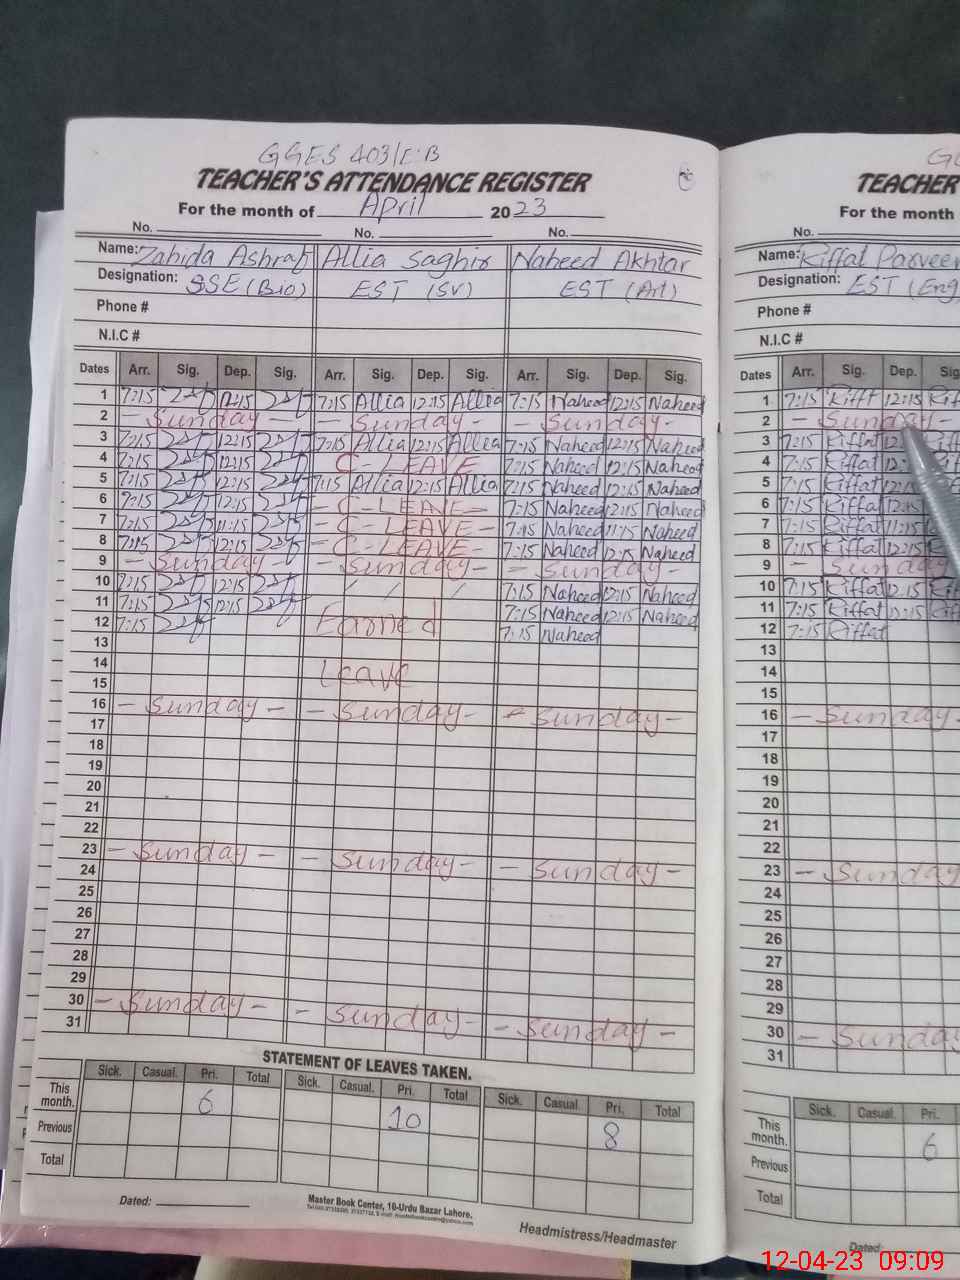 GGES 403/E.B
TEACHER'S ATTENDANCE REGISTER
For the month of April 2023
No. No. No.
Name: Zahida Ashraf Allia Saghir Naheed Akhtar
Designation: SSE (Bio) EST (SV) EST (Art)
Phone #
N.I.C #
Dates Arr. Sig. Dep. Sig. Arr. Sig. Dep. Sig. Arr. Sig. Dep. Sig.
1 7:15 12:15 7:15 Allia 12:15 Allia 7:15 Naheed 12:15 Naheed
2 - Sunday - - Sunday - - Sunday -
3 7:15 12:15 7:15 Allia 12:15 Allia 7:15 Naheed 12:15 Naheed
4 7:15 12:15 C-LEAVE 7:15 Naheed 12:15 Naheed
5 7:15 12:15 7:15 Allia 12:15 Allia 7:15 Naheed 12:15 Naheed
6 7:15 12:15 - C-LEAVE - 7:15 Naheed 12:15 Naheed
7 7:15 11:15 - C-LEAVE - 7:15 Naheed 11:15 Naheed
8 7:15 12:15 - C-LEAVE - 7:15 Naheed 12:15 Naheed
9 - Sunday - - Sunday - - Sunday -
10 7:15 12:15 / / / 7:15 Naheed 12:15 Naheed
11 7:15 12:15 Earned 7:15 Naheed 12:15 Naheed
12 7:15 7:15 Naheed
13
14 Leave
15
16 - Sunday - - Sunday - - Sunday -
17
18
19
20
21
22
23 - Sunday - - Sunday - - Sunday -
24
25
26
27
28
29
30 - Sunday - - Sunday - - Sunday -
31
STATEMENT OF LEAVES TAKEN.
Sick. Casual. Pri. Total Sick. Casual. Pri. Total Sick. Casual Pri. Total
This month. 6 10 8
Previous
Total
Dated:
Master Book Center, 16-Urdu Bazar Lahore.
Headmistress/Headmaster
TEACHER
For the month
No.
Name: Riffat Parveen
Designation: EST (Eng
Phone #
N.I.C #
Dates Arr. Sig. Dep. Sig
1 7:15 Riffat 12:15
2 - Sunday -
3 7:15 Riffat
4 7:15 Riffat
5 7:15 Riffat
6 7:15 Riffat 12:15
7 7:15 Riffat 11:15
8 7:15 Riffat 12:15
9 - Sunday
10 7:15 Riffat 12:15
11 7:15 Riffat 12:15
12 7:15 Riffat
13
14
15
16 - Sunday
17
18
19
20
21
22
23 - Sunday
24
25
26
27
28
29
30 - Sunday
31
Sick. Casual. Pri.
This month. 6
Previous
Total
Dated:
12-04-23 09:09